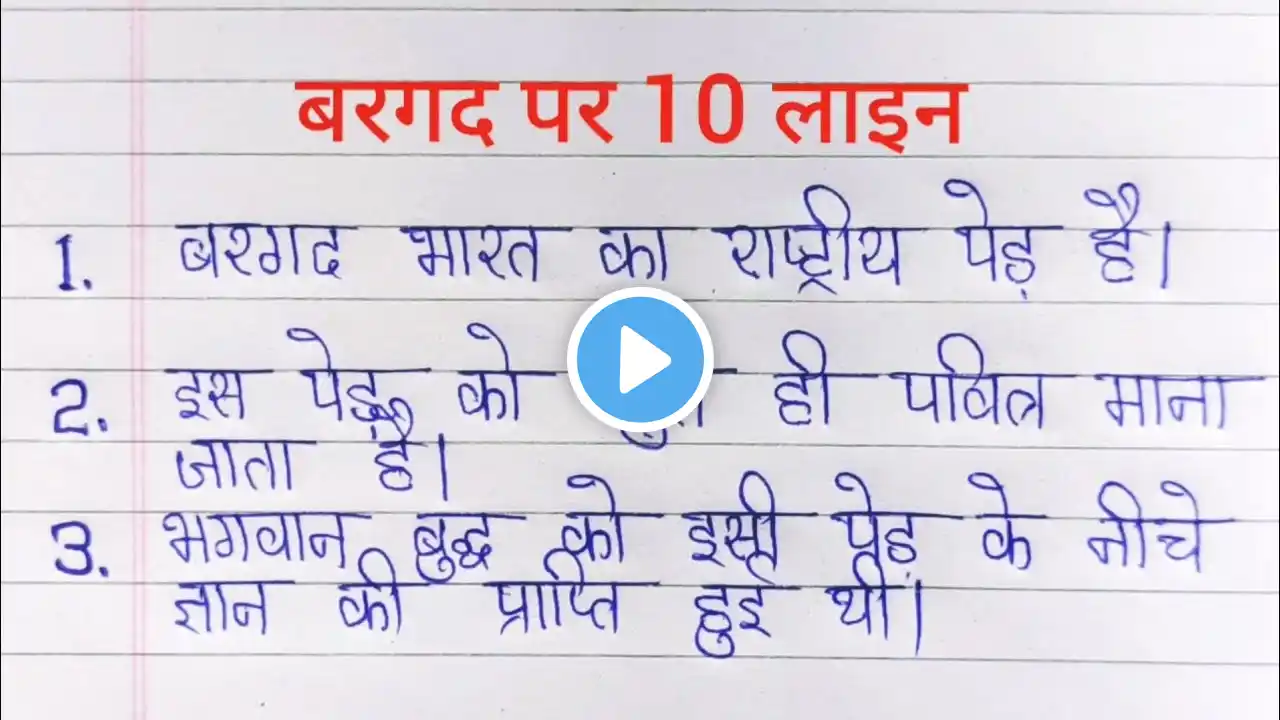 बरगद पर 10 लाइन
1. बरगद भारत का राष्ट्रीय पेड़ है।
2. इस पेड़ को ही पवित्र माना
जाता है।
3. भगवान बुद्ध को इसी पेड़ के नीचे
ज्ञान की प्राप्ति हुई थी।